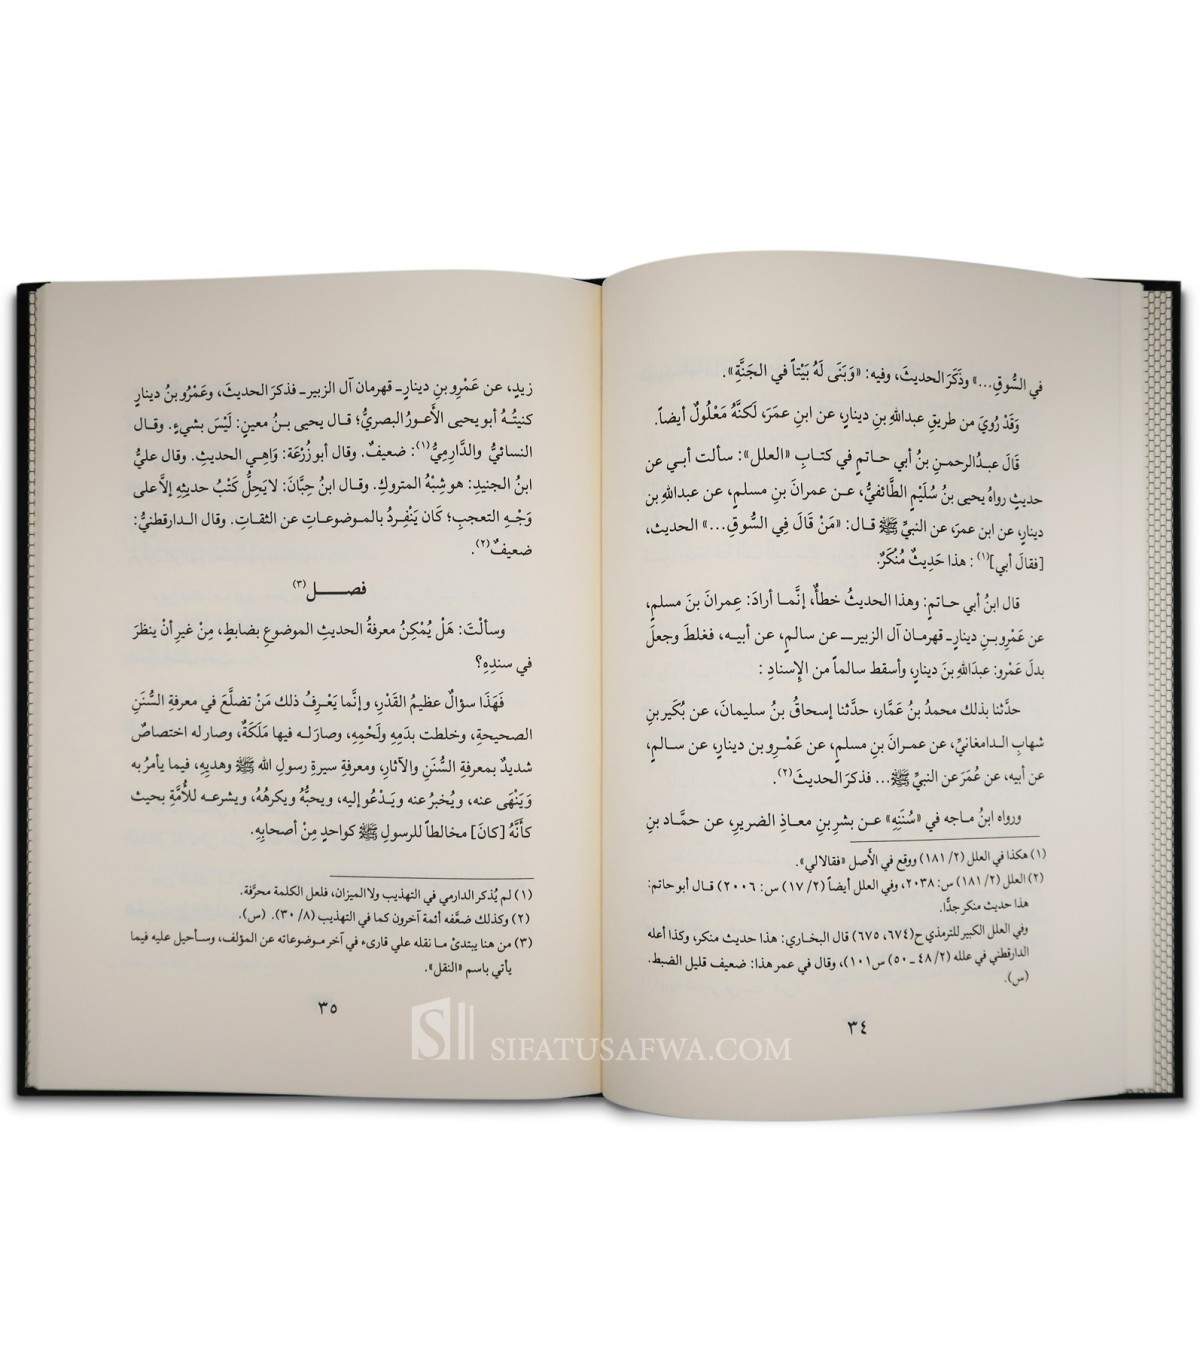 في السُّوقِ...» وذَكَرَ الحديثَ، وفيه: «وَبَنَى لَهُ بَيْتاً في الجَنَّةِ».
وَقَدْ رُوِيَ من طريقِ عبداللهِ بنِ دينارٍ، عن ابنِ عمرَ، لَكنَّهُ مَعْلُولٌ أيضاً.
قَالَ عبدُالرحمنِ بنُ أبي حاتمٍ في كتابِ «العلل»: سألت أبي عن
حديثٍ رواهُ يحيى بنُ سُلَيْمٍ الطَّائفيُّ، عن عمرانَ بنِ مسلمٍ، عن عبداللهِ بن
دينارٍ، عن ابن عمرَ، عن النبيِّ ﷺ قال: «مَنْ قَالَ فِي السُّوقِ...» الحديث،
[فقالَ أبي](١) : هذا حَدِيثٌ مُنْكَرٌ.
قال ابنُ أبي حاتمٍ: وهذا الحديثُ خطأٌ، إنَّما أرادَ: عِمرانَ بنَ مسلمٍ،
عن عَمْرِو بنِ دينارٍ ـ قهرمان آل الزبير ـ عن سالمٍ، عن أبيه، فغلطَ وجعلَ
بدلَ عَمْرو: عبدَاللهِ بنَ دينارٍ، وأسقط سالماً من الإِسنادِ :
حدَّثنا بذلك محمدُ بنُ عَمَّار، حدَّثنا إسحاقُ بنُ سليمانَ، عن بُكَير بنِ
شهابِ الدامغانيِّ، عن عمرانَ بنِ مسلمٍ، عن عَمْرِو بن دينارٍ، عن سالمٍ،
عن أبيه، عن عُمَرَ عن النبيِّ ﷺ... فذكرَ الحديثَ(٢).
ورواه ابنُ ماجه في «سُنَنِهِ» عن بشرِ بنِ معاذٍ الضريرِ، عن حمَّاد بنِ
(١) هكذا في العلل (٢/ ١٨١) ووقع في الأصل «فقالا لي».
(٢) العلل (٢/ ١٨١) س: ٢٠٣٨، وفي العلل أيضاً (٢/ ١٧) س: ٢٠٠٦) قال أبو حاتم:
هذا حديث منكر جدًّا.
وفي العلل الكبير للترمذي ح(٦٧٤، ٦٧٥) قال البخاري: هذا حديث منكر، وكذا أعله
الدارقطني في علله (٢/ ٤٨ ـ ٥٠) س١٠١)، وقال في عمر هذا: ضعيف قليل الضبط.
(س).
٣٤
زيدٍ، عن عَمْرِو بنِ دينارٍ ـ قهرمان آل الزبير ـ فذكرَ الحديثَ، وعَمْرُو بنُ دينارٍ
كنيتُهُ أبو يحيى الأعورُ البصريُّ؛ قال يحيى بنُ معينٍ: لَيْسَ بشيءٍ. وقال
النسائيُّ والدَّارِميُّ(١): ضعيفٌ. وقال أبو زُرْعَة: وَاهِي الحديثِ. وقال عليُّ
ابنُ الجنيدِ: هو شِبْهُ المتروكِ. وقال ابنُ حِبَّانَ: لا يَحِلُّ كَتْبُ حديثِهِ إلاَّ على
وَجْهِ التعجبِ؛ كَان يَنْفِرِدُ بالموضوعاتِ عن الثقاتِ. وقال الدارقطنيُّ:
ضعيفٌ(٢).
فصل(٣)
وسألْتَ: هَلْ يُمْكِنُ معرفةُ الحديثِ الموضوعِ بضابطٍ، مِنْ غيرِ أنْ ينظرَ
في سندِهِ؟
فَهَذَا سؤالٌ عظيمُ القَدْرِ، وإنَّما يَعْرِفُ ذلك مَنْ تضلَّعَ في معرفةِ السُّنَنِ
الصحيحةِ، وخلطت بدَمِهِ ولَحْمِهِ، وصارَ له فيها مَلَكَةٌ، وصار له اختصاصٌ
شديدٌ بمعرفةِ السُّنَنِ والآثارِ، ومعرفةِ سيرةِ رسولِ الله ﷺ وهديِهِ، فيما يأمرُ به
وَيَنْهَى عنه، ويُخبرُ عنه ويَدْعُو إليه، ويحبُّهُ ويكرهُهُ، ويشرعه للأُمَّةِ بحيث
كأنَّهُ [كانَ] مخالطاً للرسولِ ﷺ كواحدٍ مِنْ أصحابِهِ.
(١) لم يُذكر الدارمي في التهذيب ولا الميزان، فلعل الكلمة محرَّفة.
(٢) وكذلك ضعَّفه أئمة آخرون كما في التهذيب (٨/ ٣٠). (س).
(٣) من هنا يبتدئ ما نقله علي قارىء في آخر موضوعاته عن المؤلف، وسأحيل عليه فيما
يأتي باسم «النقل».
٣٥
SIFATUSAFWA.COM